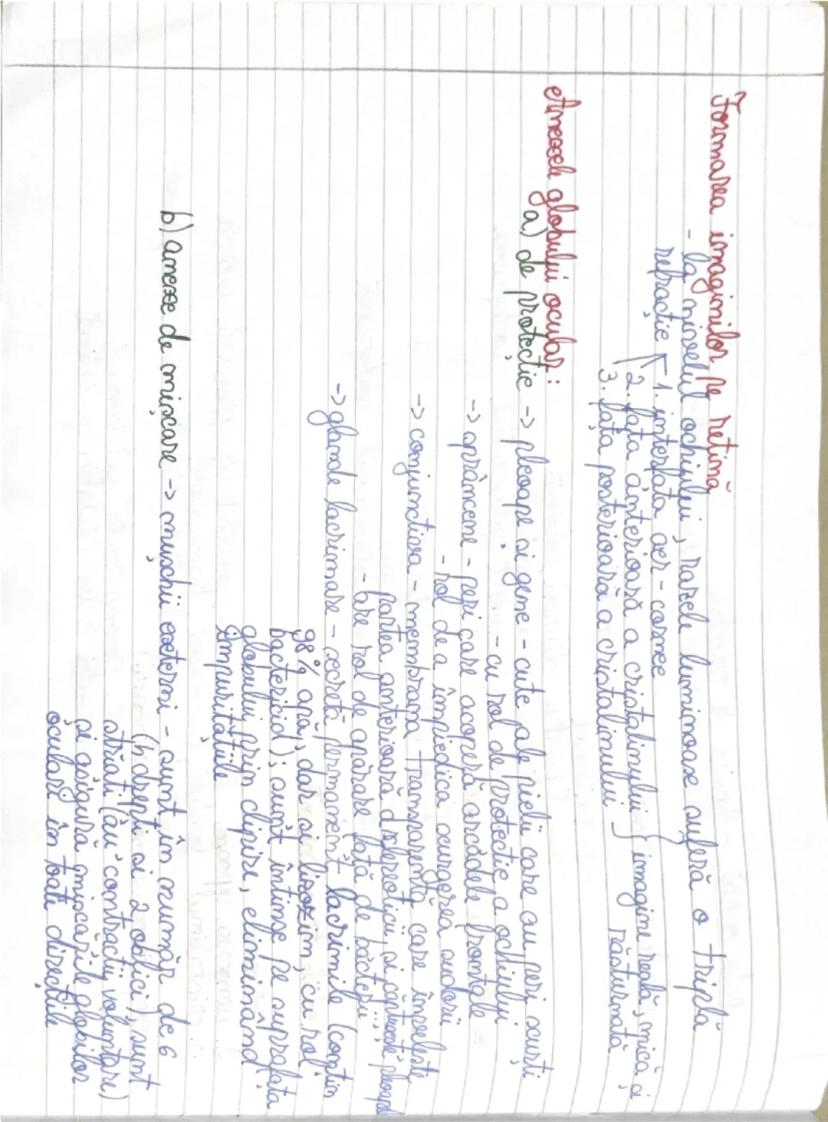 Formarea imaginilor pe retină
- la nivelul ochiului, razele luminoase suferă o triplă
refracție 1. interfața aer-cornee
2. fața anterioară a cristalinului } imagine reală, mică și
3. fața posterioară a cristalinului răsturnată
Anexele globului ocular:
a) de protecție -> pleoape și gene - cute ale pielii care au peri scurți
- cu rol de protecție a ochiului
-> sprâncene - peri care acoperă arcadele frontale
- rol de a împiedica scurgerea sudorii
-> conjunctiva - membrana transparentă care învelește
partea anterioară a sclerotiji și căptușește pleoapele
- are rol de apărare față de bacterii
-> glande lacrimare - secretă permanent lacrimile (conțin
98% apă, dar și lizozim, cu rol
bactericid); sunt întinse pe suprafața
globului prin clipire, eliminând
impuritățiile
b) anexe de mișcare -> mușchii externi - sunt în număr de 6
(4 drepți și 2 oblici), sunt
striați (au contracții voluntare)
și asigură mișcările globilor
oculari în toate direcțiile